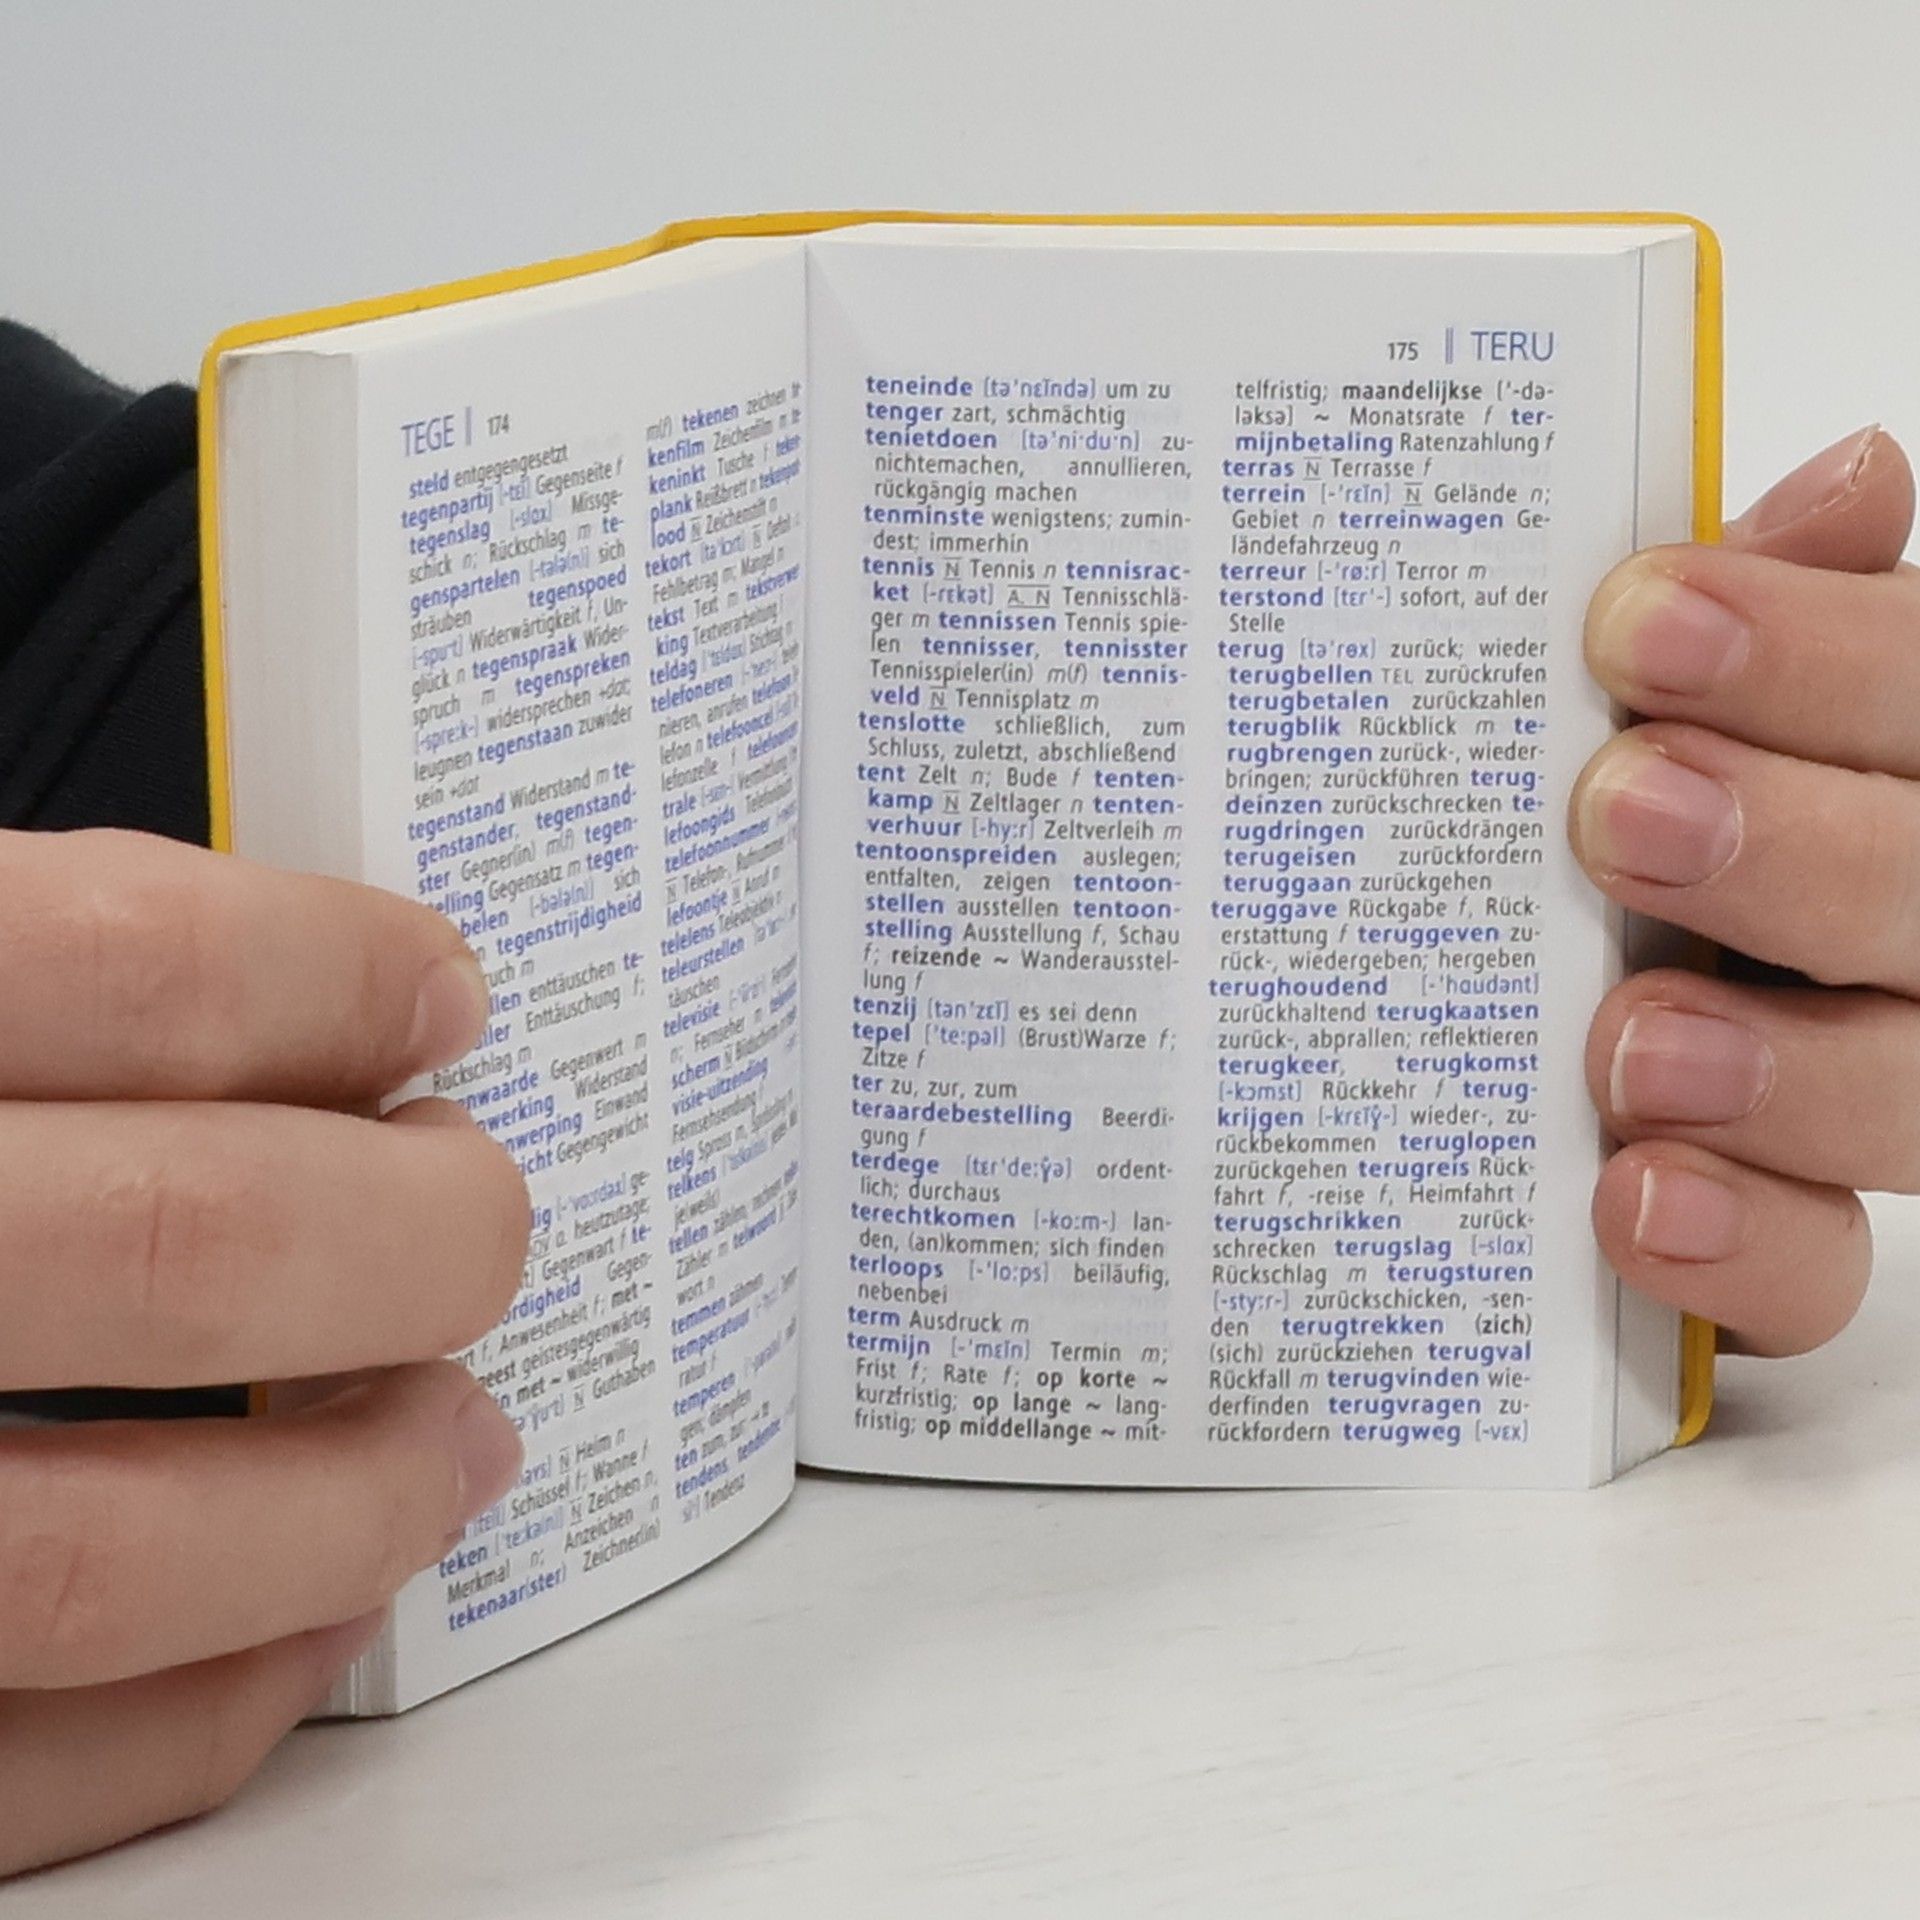 TEGE | 174
steld entgegengesetzt
tegenpartij [-tɛĭ] Gegenseite f
tegenslag [-slɑx] Missge-
schick n; Rückschlag m te-
genspartelen [-talə(n)] sich
sträuben tegenspoed
[-spu·t] Widerwärtigkeit f, Un-
glück n tegenspraak Wider-
spruch m tegenspreken
[-spre:k-] widersprechen +dat;
leugnen tegenstaan zuwider
sein +dat
tegenstand Widerstand m te-
genstander, tegenstand-
ster Gegner(in) m(f) tegen-
stelling Gegensatz m tegen-
[-bələ(n)] sich
tegenstrijdigheid
m
enttäuschen te-
Enttäuschung f;
Rückschlag m
Gegenwert m
Widerstand
Einwand
Gegengewicht
[-'vo:rdəx] ge-
heutzutage;
Gegenwart f te-
Gegen-
f, Anwesenheit f; met ~
geistesgegenwärtig
met ~ widerwillig
N Guthaben
N Heim n
Schüssel f; Wanne f
teken ['te:kə(n)] N Zeichen n,
Merkmal n; Anzeichen n
tekenaar(ster) Zeichner(in)
m(f) tekenen zeichnen
kenfilm Zeichenfilm m
keninkt Tusche f teken-
plank Reißbrett n
lood N Zeichenstift n
tekort [tə'kɔrt] N
Fehlbetrag m; Mangel n
tekst Text m
king Textverarbeitung f
teldag Stichtag
telefoneren
nieren, anrufen
lefon n telefooncel
lefonzelle f
trale Vermittlung
lefoongids Telefonbuch
telefoonnummer
N Telefon-, Rufnummer
lefoontje N Anruf m
telelens Teleobjektiv n
teleurstellen
täuschen
televisie
n; Fernseher m
scherm N Bildschirm
visie-uitzending
Fernsehsendung f
telg Spross m
telkens
je(weils)
tellen zählen, rechnen
Zähler m telwoord
wort n
temmen zähmen
temperatuur
ratur f
temperen
gen; dämpfen
ten zum, zur
tendens,
Tendenz
175 || TERU
teneinde [tə'nɛĭndə] um zu
tenger zart, schmächtig
tenietdoen [tə'ni·du·n] zu-
nichtemachen, annullieren,
rückgängig machen
tenminste wenigstens; zumin-
dest; immerhin
tennis N Tennis n tennisrac-
ket [-rɛkət] A, N Tennisschlä-
ger m tennissen Tennis spie-
len tennisser, tennisster
Tennisspieler(in) m(f) tennis-
veld N Tennisplatz m
tenslotte schließlich, zum
Schluss, zuletzt, abschließend
tent Zelt n; Bude f tenten-
kamp N Zeltlager n tenten-
verhuur [-hy:r] Zeltverleih m
tentoonspreiden auslegen;
entfalten, zeigen tentoon-
stellen ausstellen tentoon-
stelling Ausstellung f, Schau
f; reizende ~ Wanderausstel-
lung f
tenzij [tɑn'zɛĭ] es sei denn
tepel ['te:pəl] (Brust)Warze f;
Zitze f
ter zu, zur, zum
teraardebestelling Beerdi-
gung f
terdege [tɛr'de:ɣ̂ə] ordent-
lich; durchaus
terechtkomen [-ko:m-] lan-
den, (an)kommen; sich finden
terloops [-'lo:ps] beiläufig,
nebenbei
term Ausdruck m
termijn [-'mɛĭn] Termin m;
Frist f; Rate f; op korte ~
kurzfristig; op lange ~ lang-
fristig; op middellange ~ mit-
telfristig; maandelijkse ['-də-
ləksə] ~ Monatsrate f ter-
mijnbetaling Ratenzahlung f
terras N Terrasse f
terrein [-'rɛĭn] N Gelände n;
Gebiet n terreinwagen Ge-
ländefahrzeug n
terreur [-'rø:r] Terror m
terstond [tɛr'-] sofort, auf der
Stelle
terug [tə'rɵx] zurück; wieder
terugbellen TEL zurückrufen
terugbetalen zurückzahlen
terugblik Rückblick m te-
rugbrengen zurück-, wieder-
bringen; zurückführen terug-
deinzen zurückschrecken te-
rugdringen zurückdrängen
terugeisen zurückfordern
teruggaan zurückgehen
teruggave Rückgabe f, Rück-
erstattung f teruggeven zu-
rück-, wiedergeben; hergeben
terughoudend [-'hɑudənt]
zurückhaltend terugkaatsen
zurück-, abprallen; reflektieren
terugkeer, terugkomst
[-kɔmst] Rückkehr f terug-
krijgen [-krɛĭɣ̂-] wieder-, zu-
rückbekommen teruglopen
zurückgehen terugreis Rück-
fahrt f, -reise f, Heimfahrt f
terugschrikken zurück-
schrecken terugslag [-slɑx]
Rückschlag m terugsturen
[-sty:r-] zurückschicken, -sen-
den terugtrekken (zich)
(sich) zurückziehen terugval
Rückfall m terugvinden wie-
derfinden terugvragen zu-
rückfordern terugweg [-vɛx]